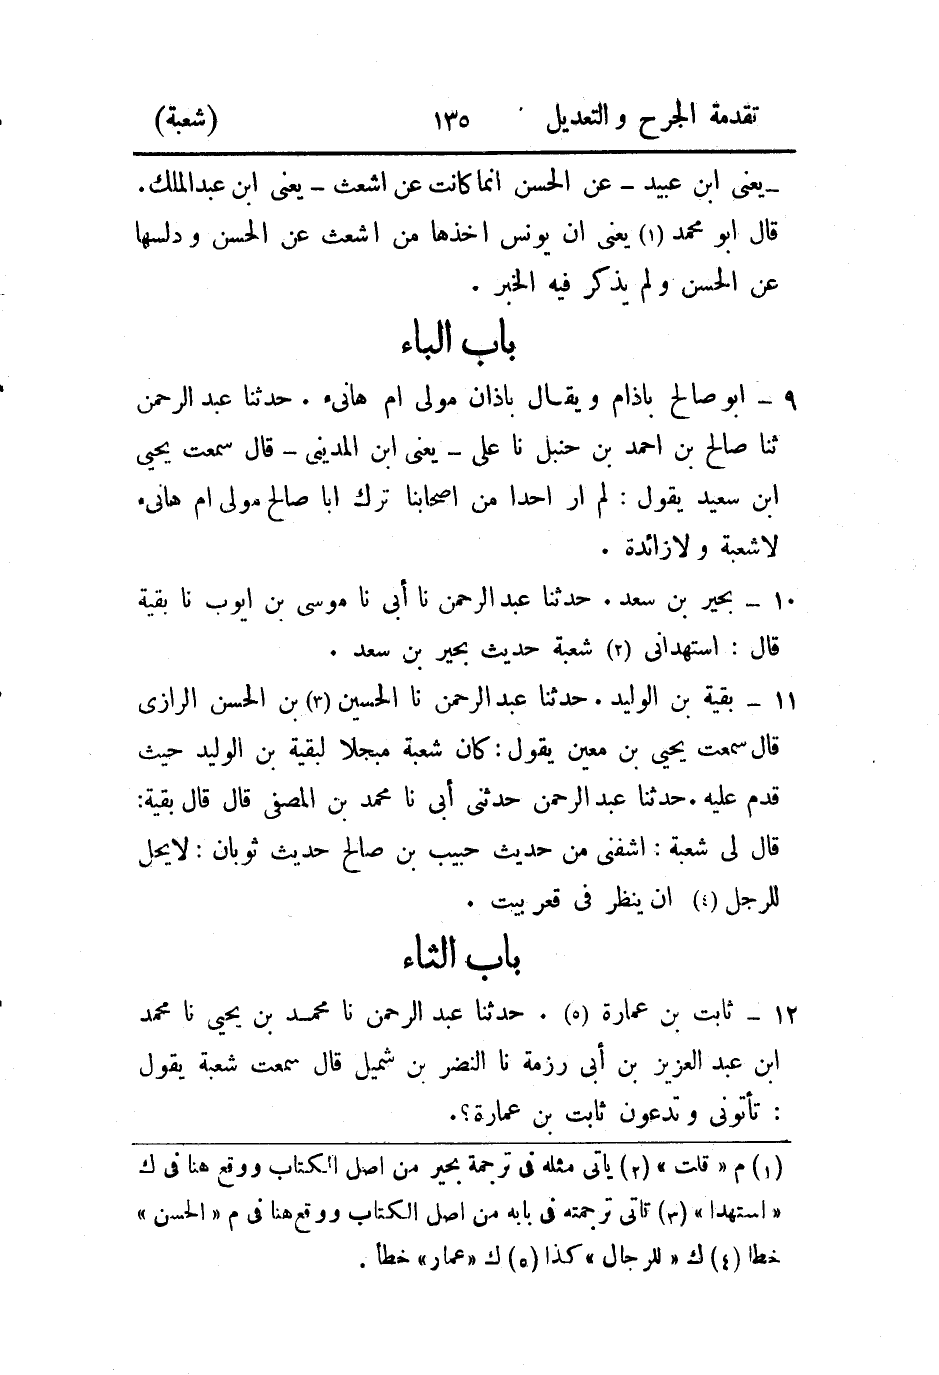 تقدمة الجرح والتعديل ١٣٥ (شعبة)
ـ يعنى ابن عبيد ـ عن الحسن انما كانت عن اشعث ـ يعنى ابن عبدالملك.
قال ابو محمد (١) يعنى ان يونس اخذها من اشعث عن الحسن ودلسها
عن الحسن ولم يذكر فيه الخبر .
باب الباء
٩ ـ ابو صالح باذام ويقال باذان مولى ام هانىء . حدثنا عبد الرحمن
ثنا صالح بن احمد بن حنبل نا على ـ يعنى ابن المدينى ـ قال سمعت يحيى
ابن سعيد يقول : لم ار احدا من اصحابنا ترك ابا صالح مولى ام هانىء
لاشعبة ولازائدة .
١٠ ـ بحير بن سعد . حدثنا عبد الرحمن نا أبى نا موسى بن ايوب نا بقية
قال : استهدانى (٢) شعبة حديث بحير بن سعد .
١١ ـ بقية بن الوليد . حدثنا عبد الرحمن نا الحسين (٣) بن الحسن الرازى
قال سمعت يحيى بن معين يقول : كان شعبة مبجلا لبقية بن الوليد حيث
قدم عليه . حدثنا عبد الرحمن حدثنى أبى نا محمد بن المصفى قال قال بقية:
قال لى شعبة : اشفنى من حديث حبيب بن صالح حديث ثوبان : لايحل
للرجل (٤) ان ينظر فى قعر بيت .
باب الثاء
١٢ ـ ثابت بن عمارة (٥) . حدثنا عبد الرحمن نا محمد بن يحيى نا محمد
ابن عبد العزيز بن أبى رزمة نا النضر بن شميل قال سمعت شعبة يقول
: تأتونى وتدعون ثابت بن عمارة؟.
(١) م « قلت » (٢) ياتى مثله فى ترجمة بحير من اصل الكتاب ووقع هنا فى ك
« استهدا » (٣) تاتى ترجمته فى بابه من اصل الكتاب ووقع هنا فى م « الحسن »
خطا (٤) ك « للرجال » كذا (٥) ك « عمار » خطأ .